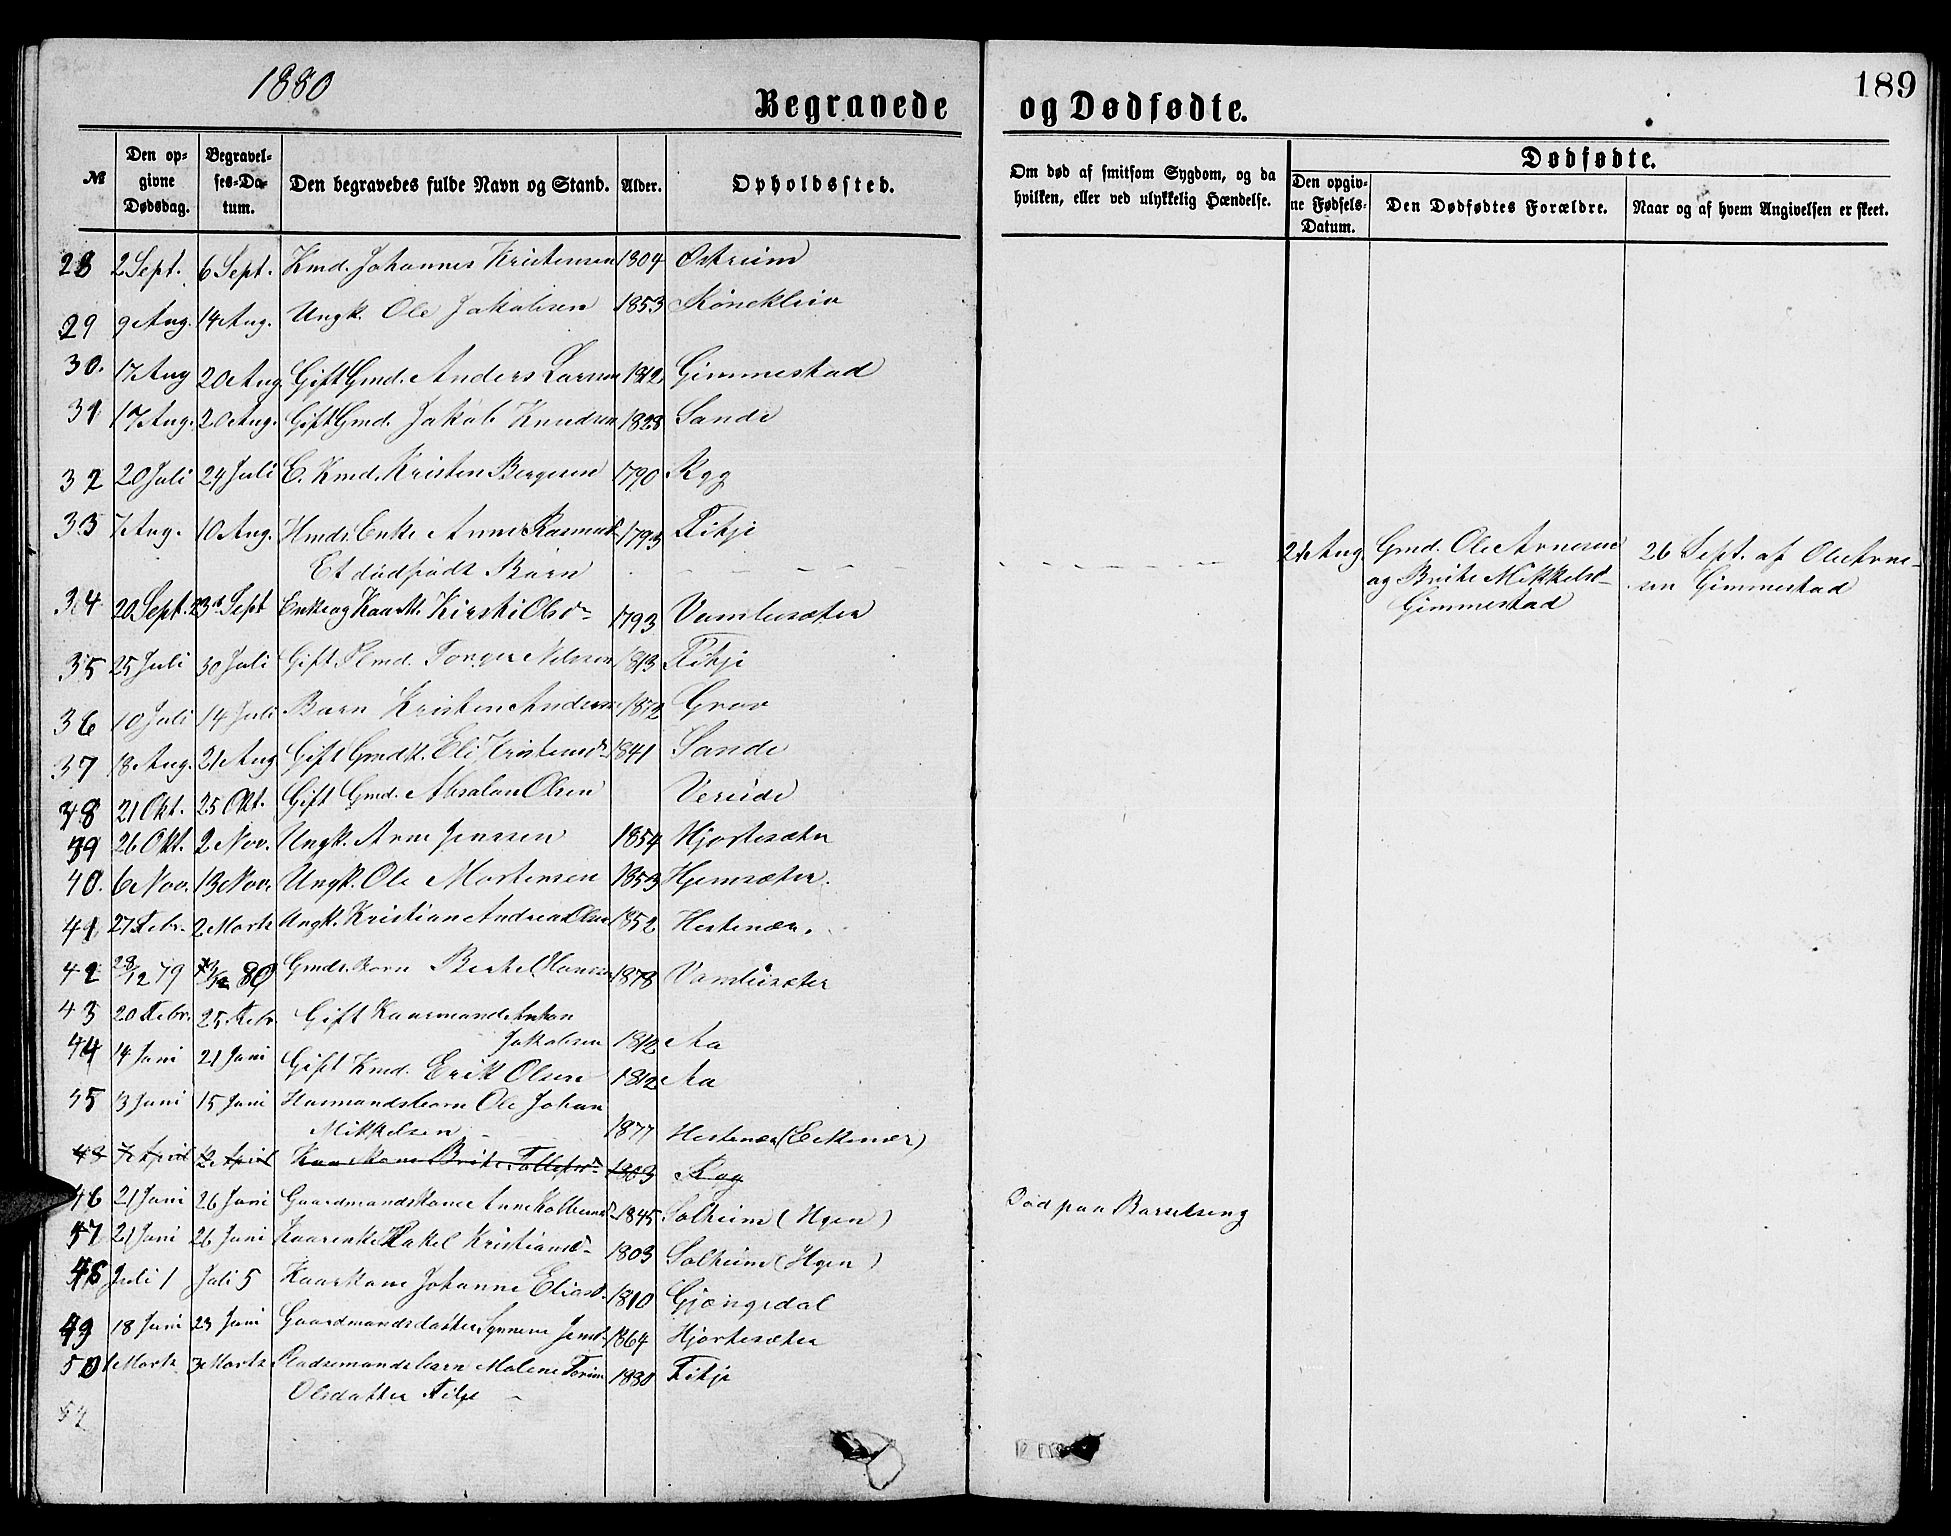 1880
189
Begravede og Dødfødte.
№
Den opgivne Dødsdag.
Begravelses-Datum.
Den begravedes fulde Navn og Stand.
Alder.
Opholdssted.
Om død af smitsom Sygdom, og da hvilken, eller ved ulykkelig Hændelse.
Dødfødte.
Den opgivne Fødsels-Datum.
Den Dødfødtes Forældre.
Naar og af hvem Angivelsen er skeet.
28 2 Sept. 6 Sept. Kmd. Johannes Kristensen 1804 Østreim
29 9 Aug. 14 Aug. Ungk. Ole Jakobsen 1853
30. 17 Aug 20 Aug. Gift Gmd. Anders Larsen 1812 Gimmestad
31 17 Aug. 20 Aug. Gift Gmd. Jakob Knudsen 1828 Sande
32 20 Juli 24 Juli E. Kmd. Kristen Bergesen 1790 Ryg
33 7 Aug. 10 Aug. Hmds. Enke Anne Rasmusd. 1793 Fitje
Et dødfødt Barn
21 Aug. Gmd. Ole Arnesen og Brite Mikkelsd. Gimmestad
26 Sept. af Ole Arnesen Gimmestad
34 20 Sept. 23d Sept Enke og Kaark. Kirsti Olsd. 1793 Vambesæter
35 25 Juli 30 Juli Gift Plmd. Torger Nilssen 1813 Fitje
36 10 Juli 14 Juli Barn Kristen Andersen 1872 Grov
37 18 Aug. 21 Aug Gift Gmdk. Eli Kristensd. 1841 Sande
38 21 Okt. 25 Okt. Gift Gmd. Absalon Olsen Vereide
39 26 Okt. 2 Nov. Ungk. Arne Jenssen 1854 Hjortesæter
40. 6 Nov. 13 Nov. Ungk. Ole Mortensen 1853 Hjemsæter.
41 27 Febr. 2 Marts Ungk. Kristian Andreas Olsen 1852 Hestenær.
42 28/12 79 80 Gmds. Barn Bertel Hansen 1878 Vambesæter
43 20 Febr. 25 Febr. Gift Kaarmand Anton
Jakobsen 1812 Aa
44 14 Juni 21 Juni Gift Kmd. Erik Olsen 1812 Aa
45 13 Juni 15 Juni Husmandsbarn Ole Johan
Mikkelsen 1877 Hestenær (Eikenær)
48 7 April 12 April Kaarkone Brite Tollefsd. 1803
46 21 Juni 26 Juni Gaardmandskone Anne 1845 Solheim (Hyen) Død paa Barselseng
47 21 Juni 26 Juni Kaarenke Rakel Kristiansd. 1803 Solheim (Hyen)
48 Juli 1 Juli 5 Kaarkone Johanne Eliasd. 1810 Gjengedal
49 18 Juni 23 Juni Gaardmandsdatter Synneve Jensd. 1864 Hjortesæter
50 1 Marts 3 Marts Pladsemandsbarn Malene Torine 1880 Fitje
Olsdatter Fitje